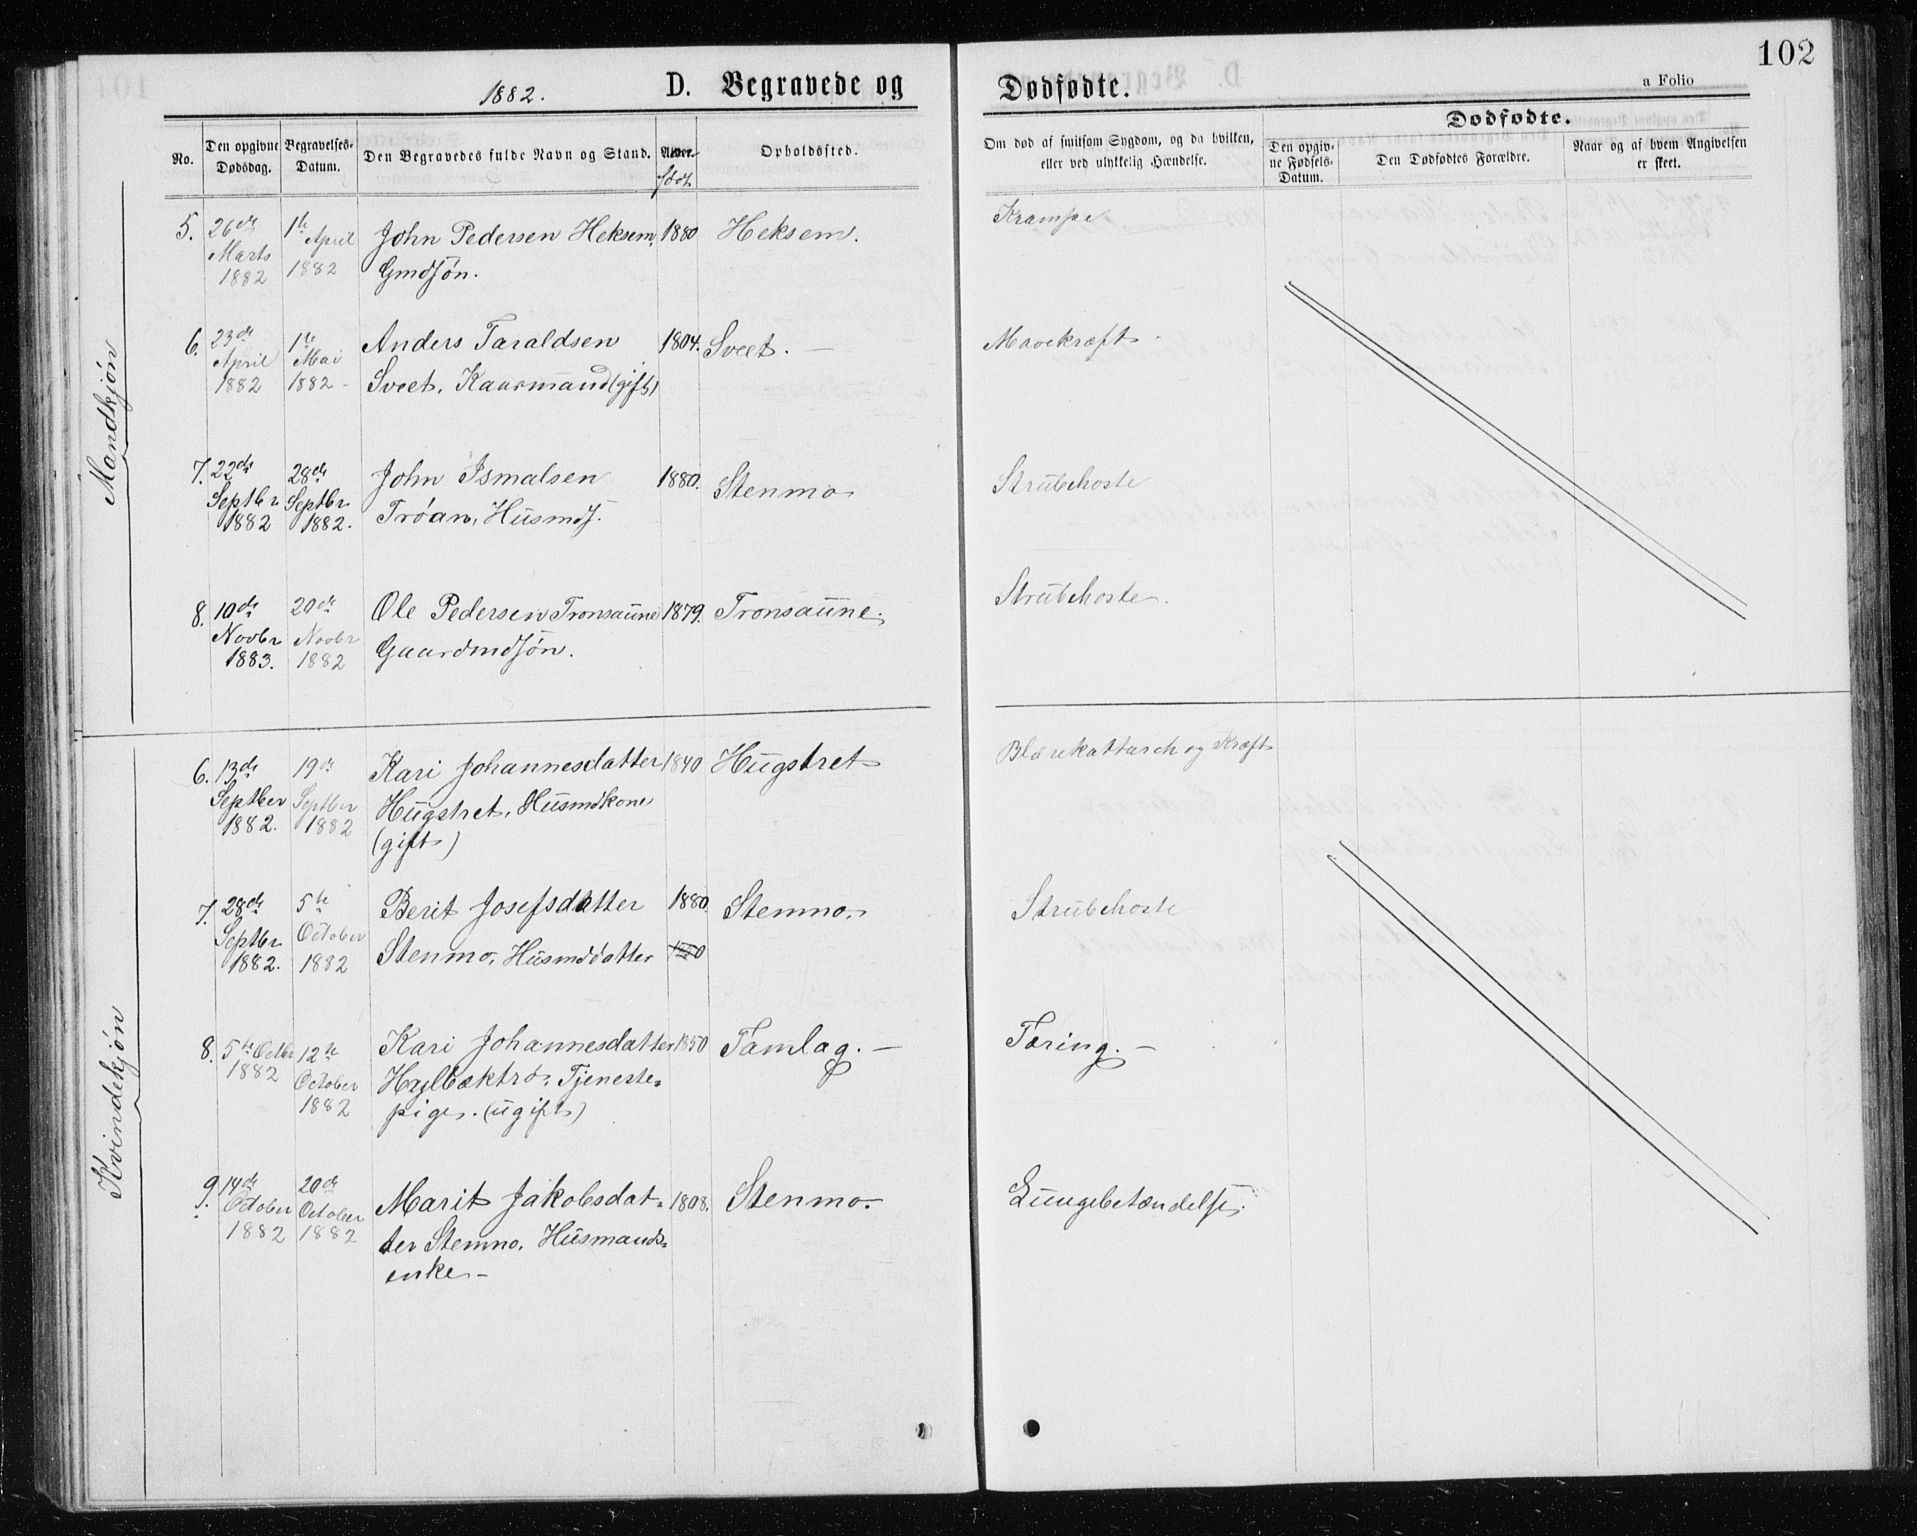 102
1882. D. Begravede og Dødfødte. a Folio
No.
Den opgivne Dødsdag.
Begravelses-Datum.
Den Begravedes fulde Navn og Stand.
født
Opholdssted.
Om død af smitsom Sygdom, og da hvilken,
eller ved ulykkelig Hændelse.
Dødfødte.
Den opgiv-
ne Fødsels-
Datum.
Den Dødfødtes Forældre.
Naar og af hvem Angivelsen
er skeet.
Mandkjøn
5. 26de 1te April John Pedersen Heksem, 1880 Heksem. Krampe
Marts 1882 Gmdsøn.
1882
6. 23de 1te Anders Taraldsen 1804. Sveet. — Mavekræft
April Mai
1882 1882 - Sveet, Kaarmand (gift)
7. 22de 28de John Ismalsen 1880. Stenmo Strubehoste
Septbr Septbr
1882 1882. Trøan, Husmds.
8. 10de 20de Ole Pedersen Tronsaune 1879. Tronsaune. Strubehoste.
Novbr Novbr Gaardmdsøn.
1883. 1882
Kvindekjøn
6. 13de 19de Kari Johannesdatter 1840 Hugstret Blærekattarrh og Kræft
Septber Septber Hugstret, Husmdkone
1882. 1882 (gift)
7. 28de 5te Berit Josefsdatter 1880. Stenmo. Strubehoste
Septbr. October Stenmo, Husmddatter
1882. 1882
8. 5te Octbr 12te Kari Johannesdatter 1850 Tamlag. — Tæring. —
1882 October Hylbæktrø, Tjeneste-
1882 pige. (ugift)
9. 14de 20de Marit Jakobsdat- 1808. Stenmo. Lungebetændelse.
October October
1882 1882 ter Stenmo, Husmands-
enke -